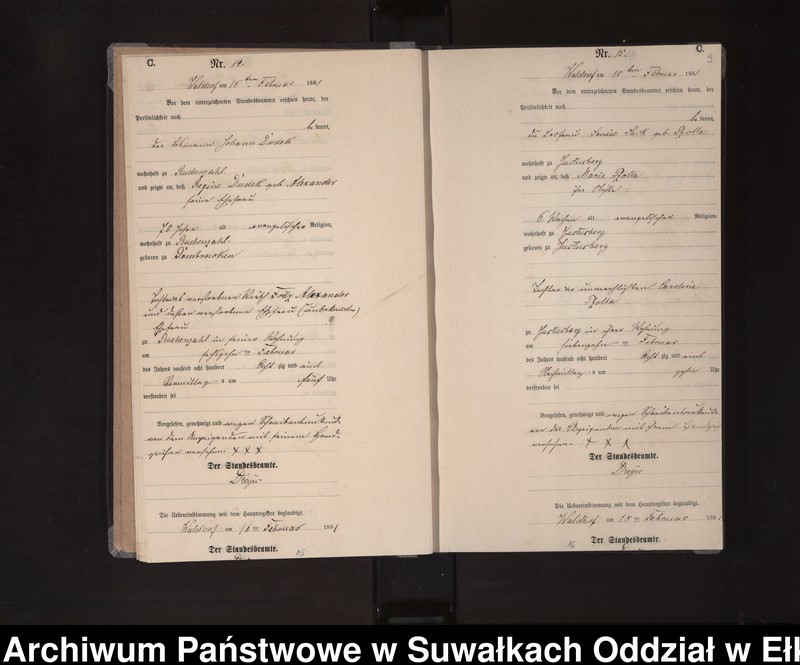 C. Nr. 14.
Waldhof am 18 ten Februar 1881
Vor dem unterzeichneten Standesbeamten erschien heute, der
Persönlichkeit nach
bekannt,
der Johann Dudek
wohnhaft zu Ruebenzahl
und zeigte an, daß Regine Dudek geb. Alexander
seine Ehefrau
70 Jahre alt evangelischer Religion,
wohnhaft zu Ruebenzahl
geboren zu Dombrowken
Tochter des verstorbenen Wirth Fritz Alexander
und dessen verstorbenen Ehefrau (unbekannten)
Ehefrau
zu Ruebenzahl in seiner Wohnung
am Februar
des Jahres tausend acht hundert acht zig und eins
Vormittag s um fünf Uhr
verstorben sei
Vorgelesen, genehmigt und wegen Schreibensunkunde
von dem Anzeigenden mit seinem Hand-
zeichen versehen. + + +
Der Standesbeamte.
Dreyer
Die Uebereinstimmung mit dem Hauptregister beglaubigt.
Waldhof am ten Februar 1881
Der Standesbeamte.
15
Nr. 15. C.
9
Waldhof am 18 ten Februar 1881
Vor dem unterzeichneten Standesbeamten erschien heute, der
Persönlichkeit nach
bekannt,
die geb. Rzolla
wohnhaft zu Justusberg
und zeigte an, daß Marie Rzolla
ihre
6 Wochen alt evangelischer Religion
wohnhaft zu Justusberg
geboren zu Justusberg
Tochter der unverehelichten Caroline
Rzolla
zu Justusberg in ihrer Wohnung
am siebenzehn ten Februar
des Jahres tausend acht hundert acht zig und eins
Nachmittag s um Uhr
verstorben sei
Vorgelesen, genehmigt und wegen Schreibensunkunde
von der Anzeigenden mit ihrem Handzeichen
versehen. + + +
Der Standesbeamte.
Dreyer
Die Uebereinstimmung mit dem Hauptregister beglaubigt.
Waldhof am 18 ten Februar 1881
16
Der Standesbeamte.
Archiwum Państwowe w Suwałkach Oddział w Ełk